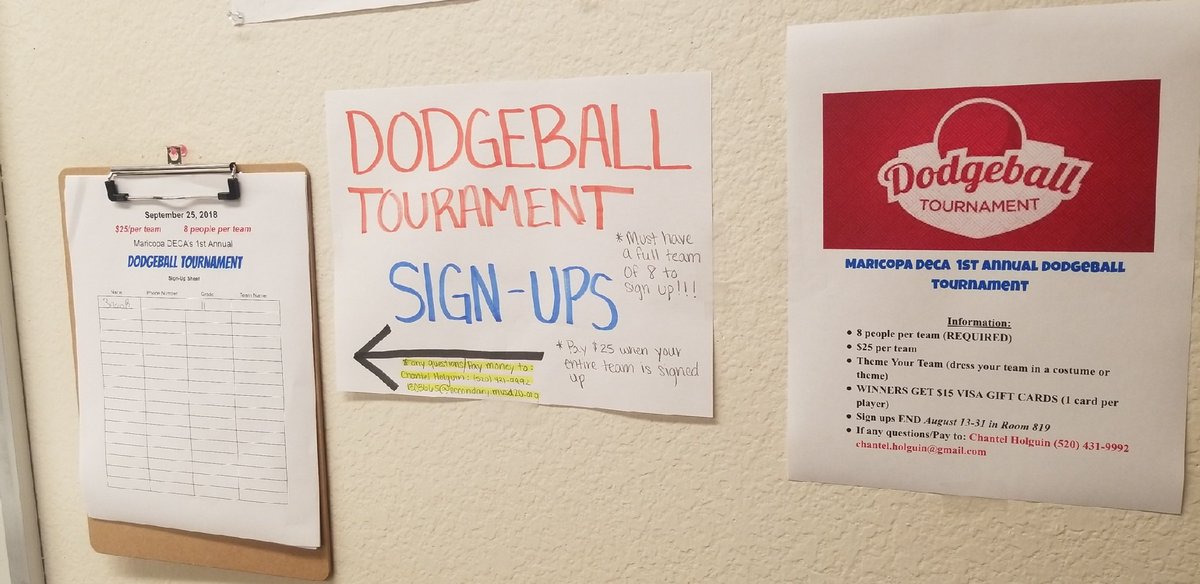 September 25, 2018
$25/per team 8 people per team
Maricopa DECA's 1st Annual
DODGEBALL TOURNAMENT
Sign-Up Sheet
Name Phone Number Grade Team Name
11
DODGEBALL
TOURAMENT
SIGN-UPS
* Must have
a full team
of 8 to
sign up!!!
* Pay $25 when your
entire team is signed
up
* any questions/Pay money to:
Chantel Holguin: (520) 431-9992
Dodgeball
TOURNAMENT
Maricopa DECA 1st Annual Dodgeball
Tournament
Information:
• 8 people per team (REQUIRED)
• $25 per team
• Theme Your Team (dress your team in a costume or
theme)
• WINNERS GET $15 VISA GIFT CARDS (1 card per
player)
• Sign ups END August 13-31 in Room 819
• If any questions/Pay to: Chantel Holguin (520) 431-9992
chantel.holguin@gmail.com